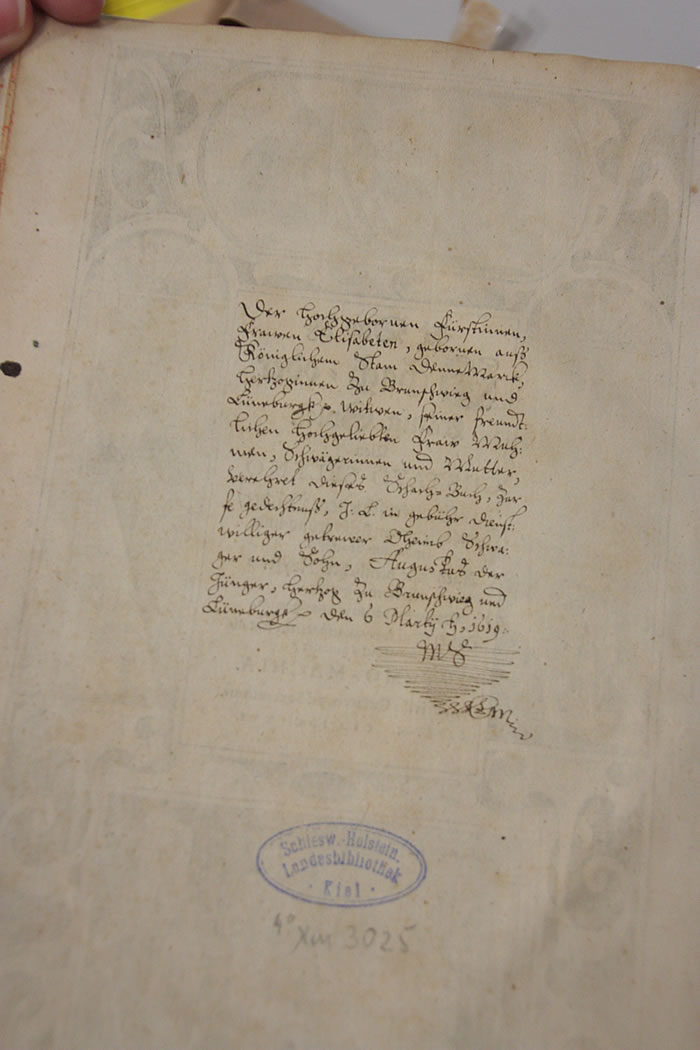 Der Hochgebornen Fürstinnen,
Frawen Elisabeten, gebornen auß
Königlichem Stam Dennemarck,
Hertzoginnen zu Braunschwieg und
Lüneburgk p. Witwen, seiner freundt-
lichen Hochgeliebten Fraw Muh-
men, Schwägerinnen und Mutter,
verehret dieses Schach-Buch, zur
gedechtnuß, J. L. in gebühr dienst-
williger getrewer Oheimb Schwa-
ger und Sohn, Augustus der
Jünger, Hertzog zu Braunschwieg und
Lüneburgk p den 6 Martij 1619.
Schlesw.-Holstein.
Landesbibliothek
Kiel
4° XIII 3025